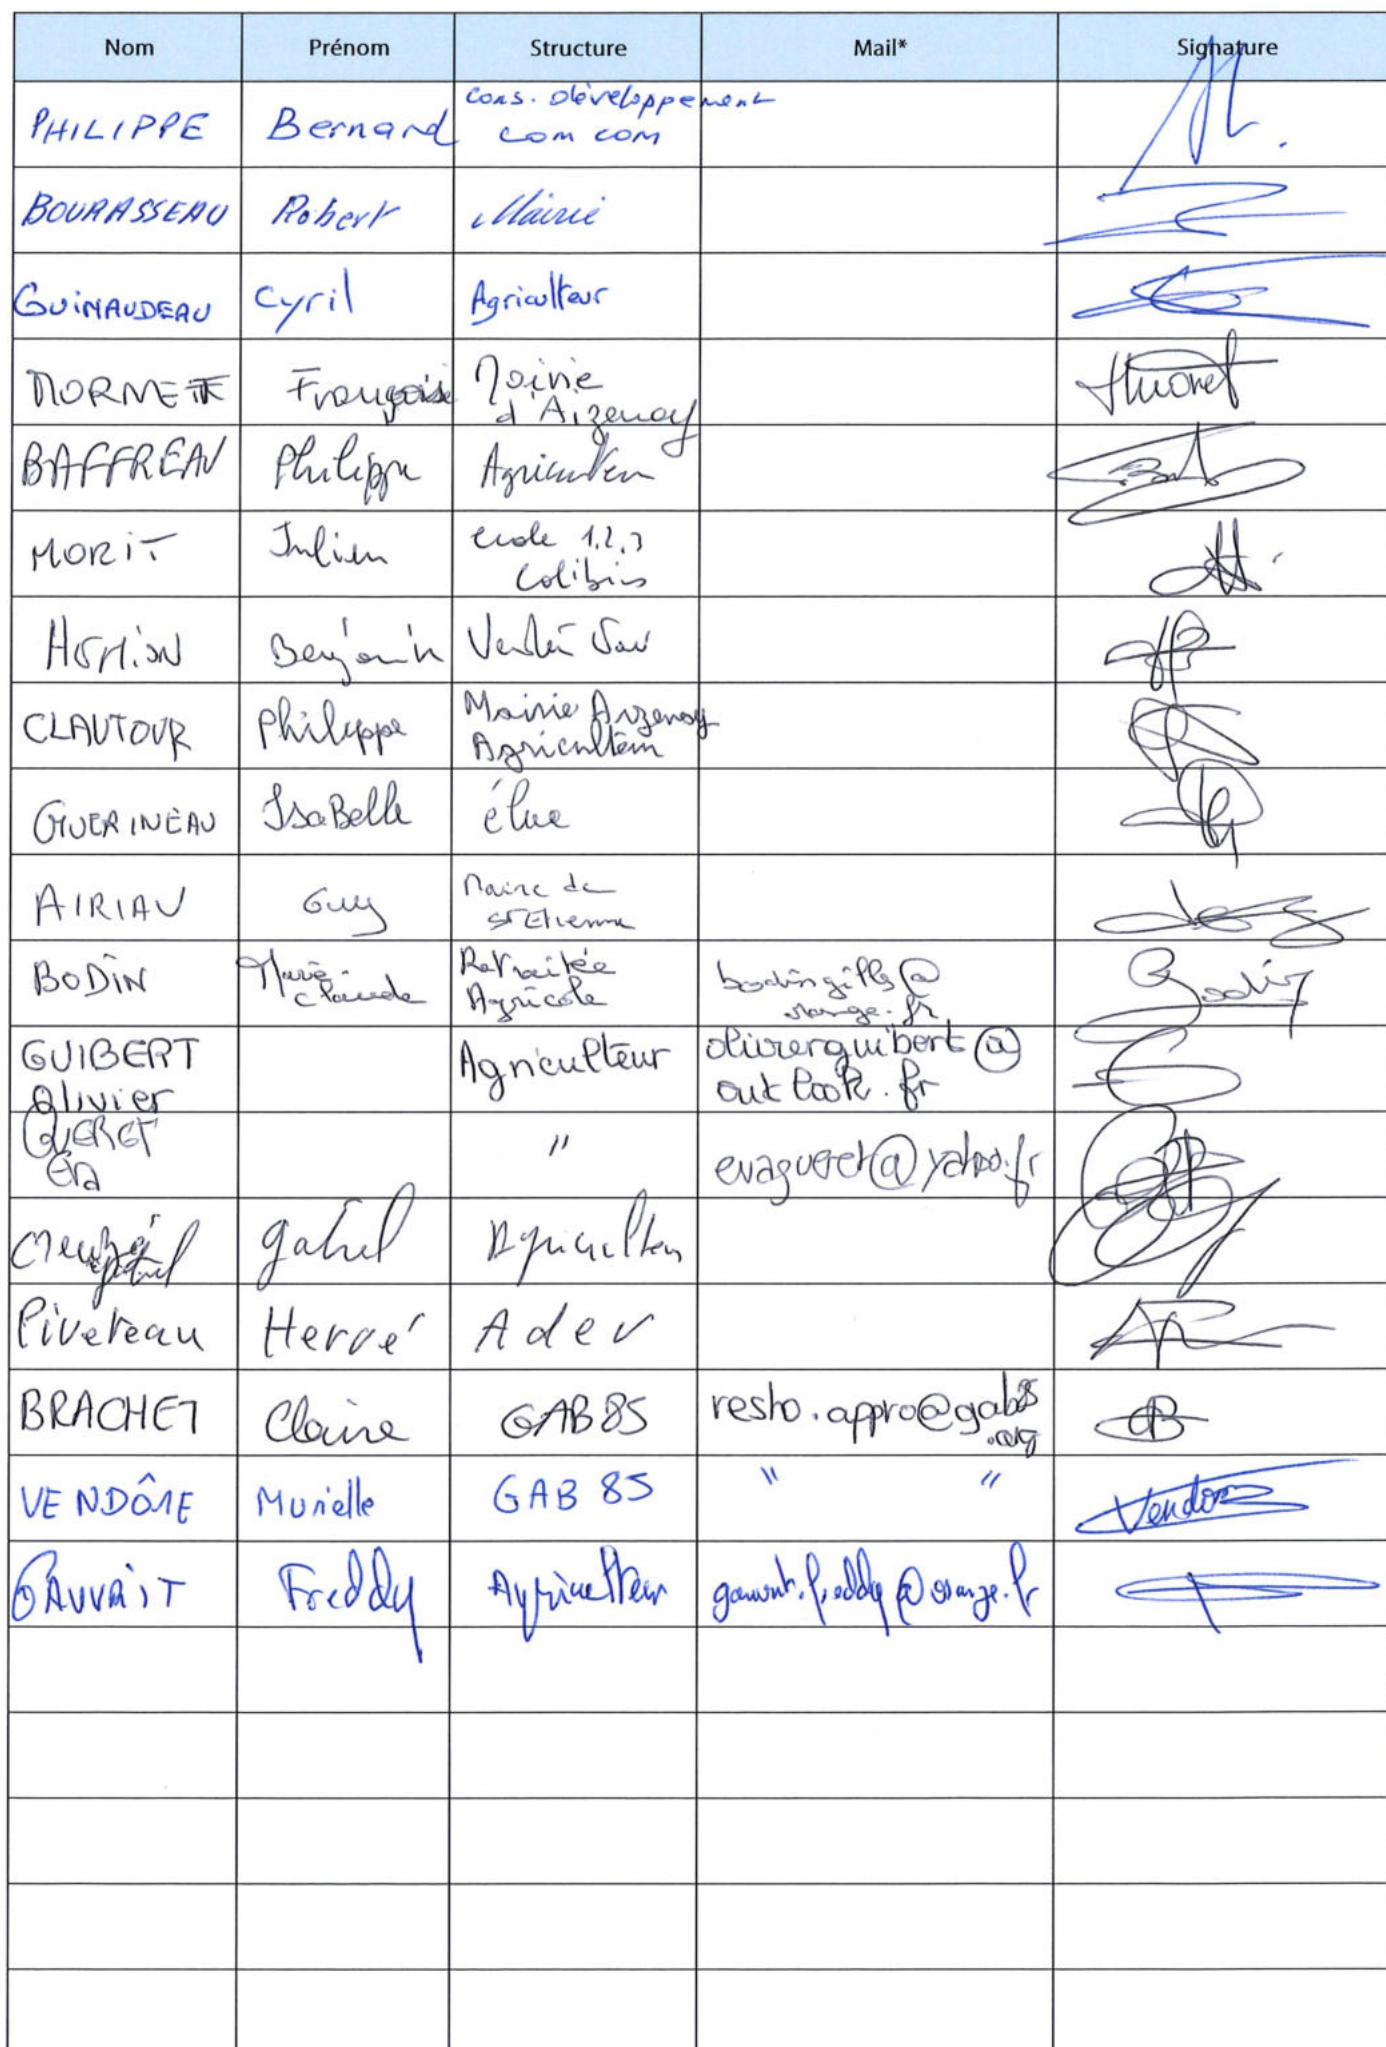 Nom Prénom Structure Mail* Signature
PHILIPPE Bernard cons. développement
com com
BOURASSEAU Robert Mairie
GUIMAUDEAU Cyril Agriculteur
MORNET Françoise Mairie
d'Aizenay
BAFFREAU Philippe Agriculteur
MORIT Julien école 1,2,3
Colibris
Benjamin
CLAUTOUR Philippe Mairie Aizenay
Agriculteur
GUERINEAU IsaBelle élue
AIRIAU Guy Maire de
St Etienne
BODIN Marie Claude Retraitée
Agricole
bodingilles@
orange.fr
Bodin
GUIBERT Agriculteur olivierguibert@
Olivier outlook.fr
QUERET " evagueret@yahoo.fr
Eva
Gabriel Agriculteur
Piveteau Hervé Ader
BRACHET Claire GAB 85 resto.appro@gab85
.org
CB
VENDÔME Murielle GAB 85 " "
Vendome
GAUVRIT Freddy Agriculteur gauvrit.freddy@orange.fr